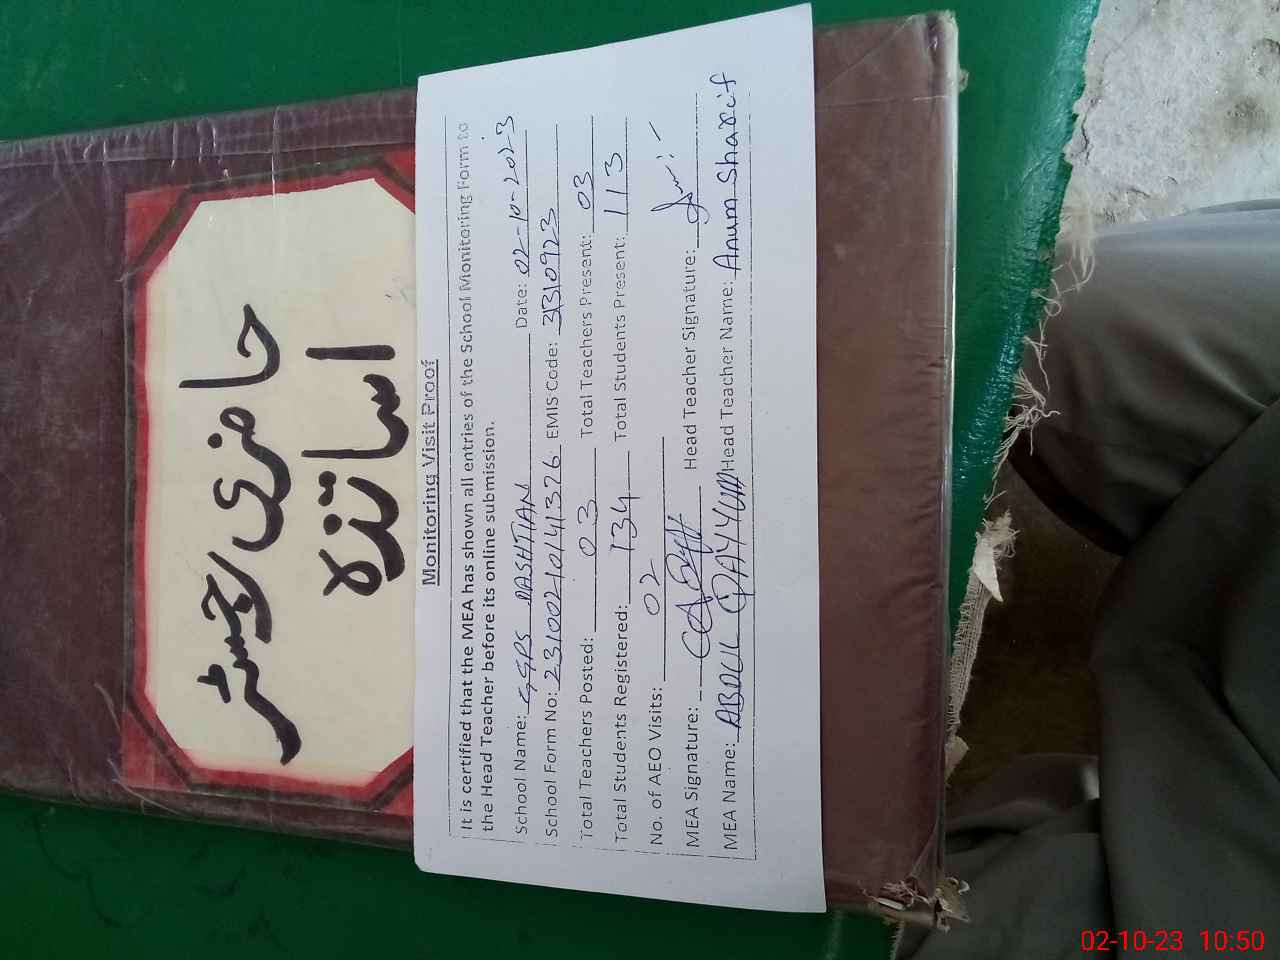 حاضری رجسٹر
اساتذہ
Monitoring Visit Proof
It is certified that the MEA has shown all entries of the School Monitoring Form to
the Head Teacher before its online submission.
School Name: GGPS DASHTIAN Date: 02-10-2023
School Form No: 23100210141376 EMIS Code: 31310923
Total Teachers Posted: 03 Total Teachers Present: 03
Total Students Registered: 134 Total Students Present: 113
No. of AEO Visits: 02
MEA Signature: Head Teacher Signature:
MEA Name: ABDUL QAYYUM Head Teacher Name: Anum Sharif
02-10-23 10:50